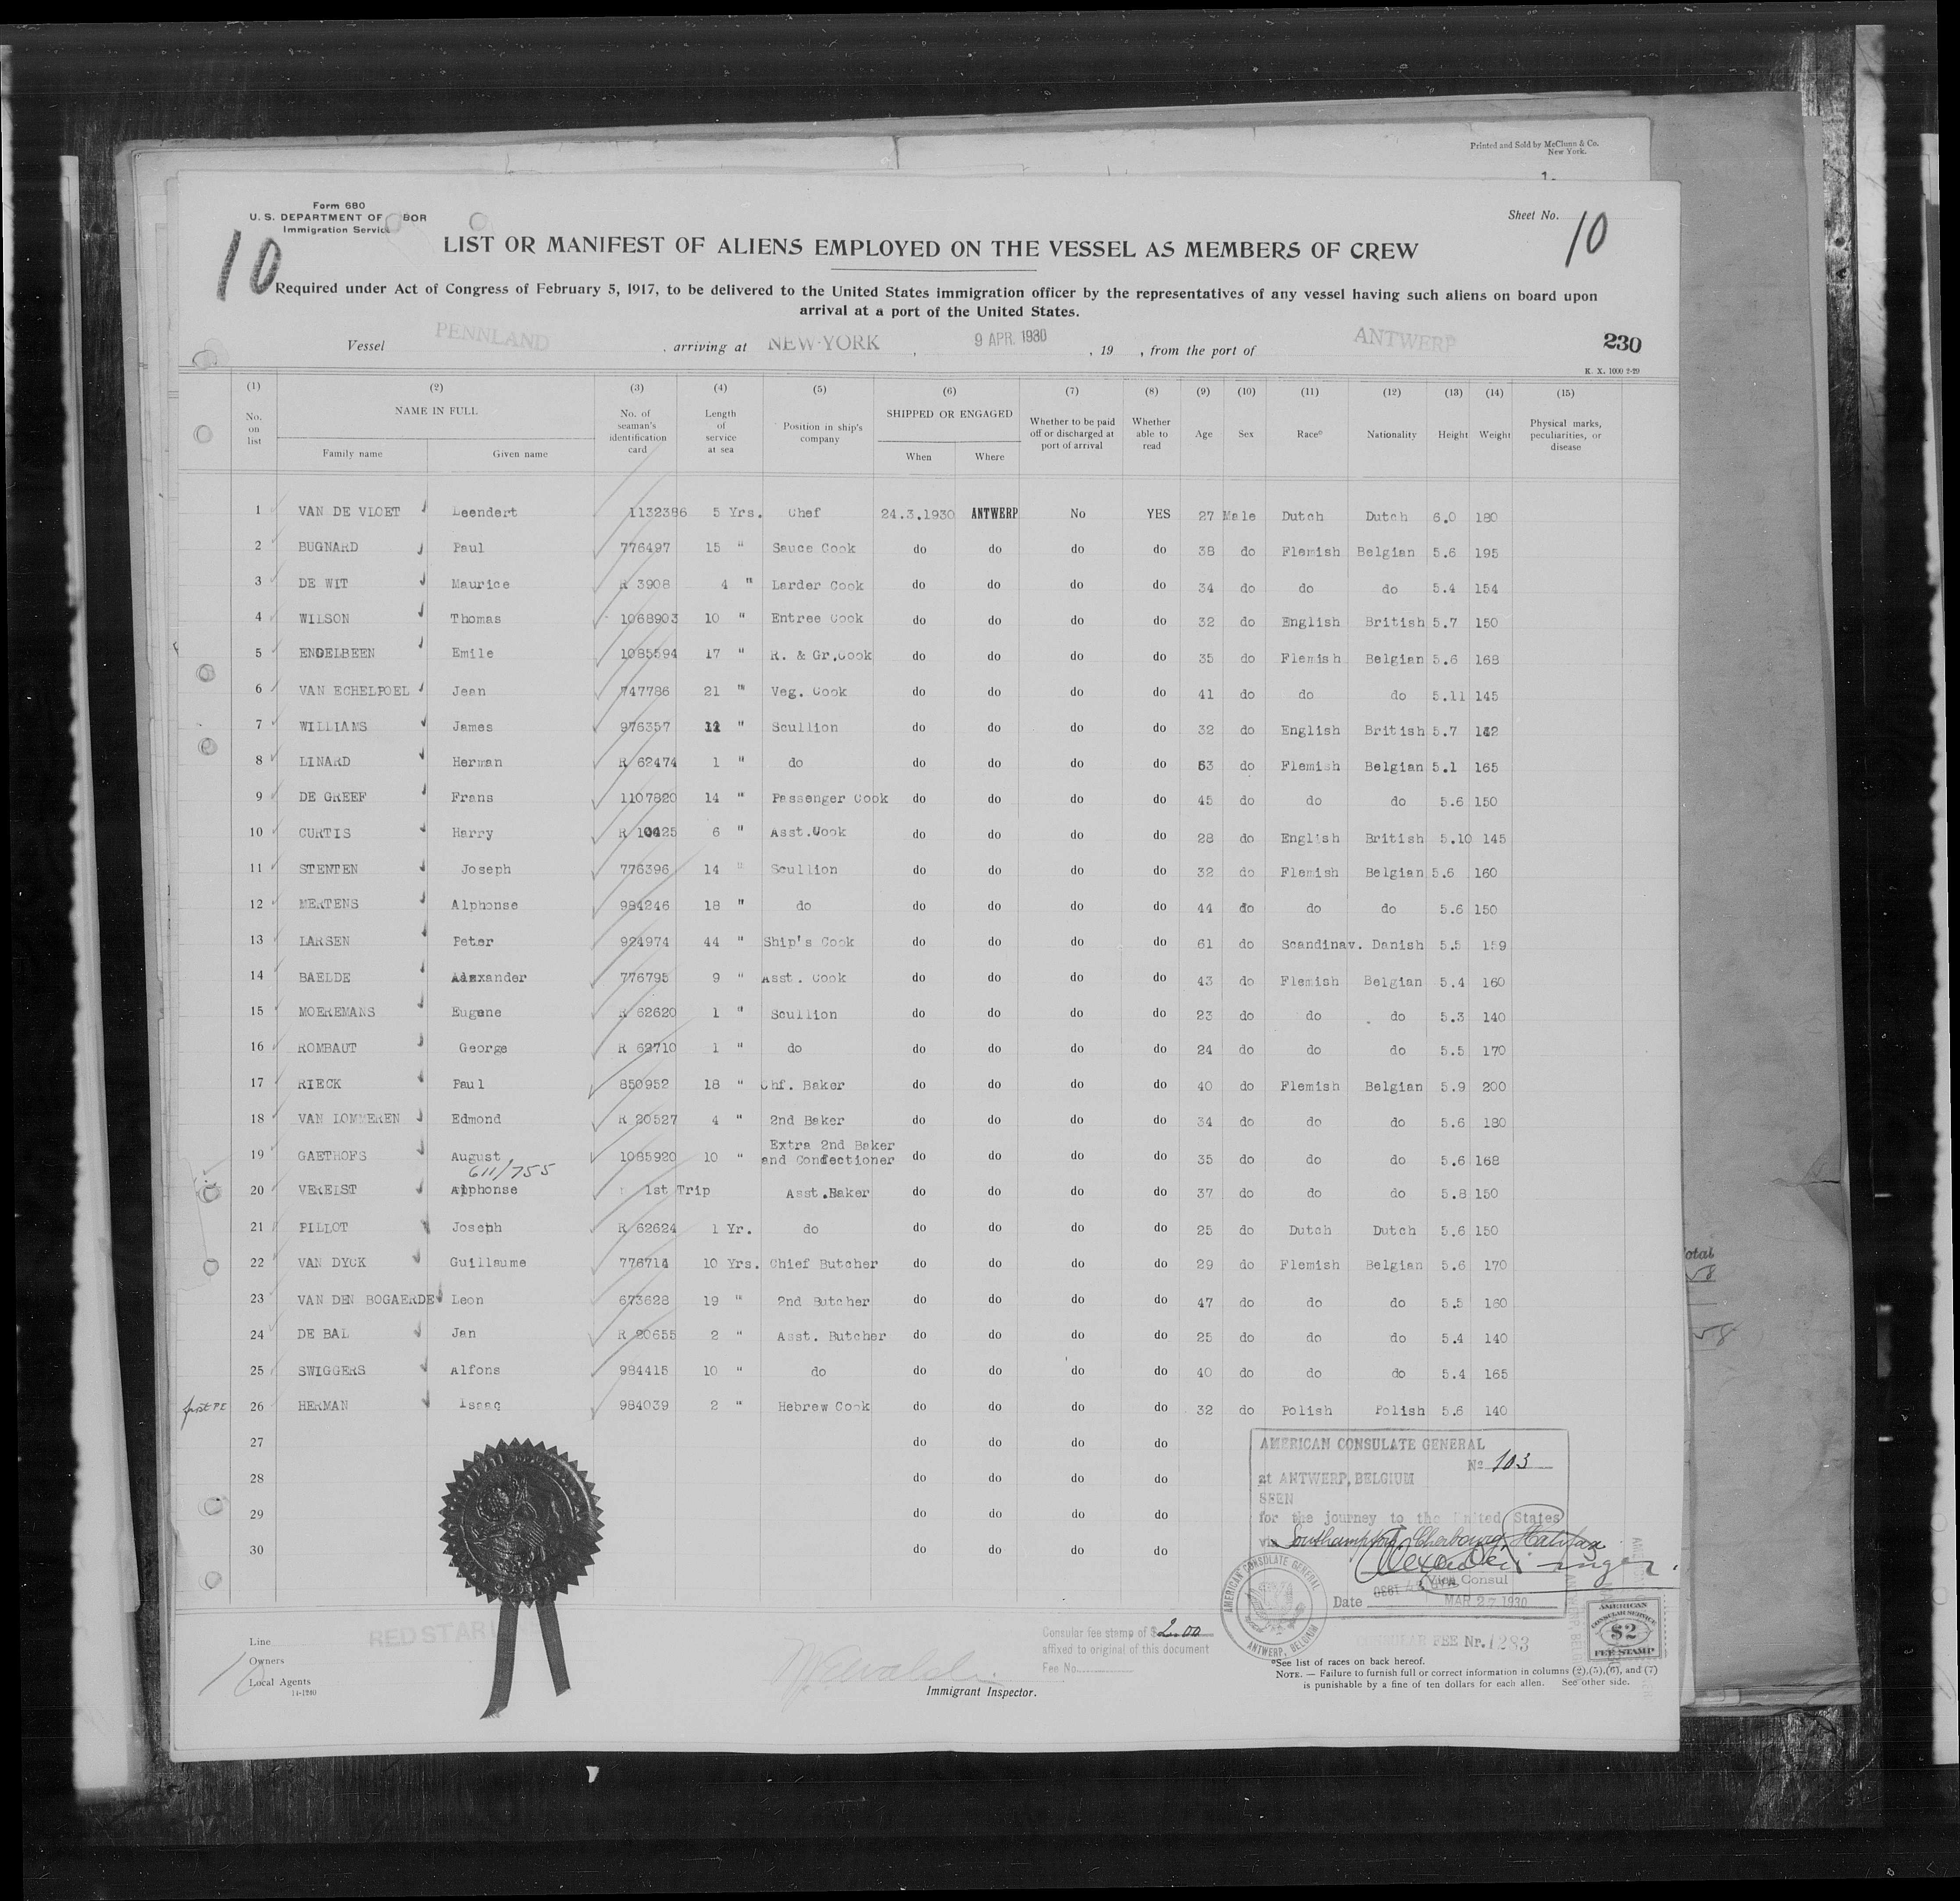 Printed and Sold by McClunn & Co.
New York.
1.
Form 680
U. S. DEPARTMENT OF BOR
Immigration Service
Sheet No. 10
10
LIST OR MANIFEST OF ALIENS EMPLOYED ON THE VESSEL AS MEMBERS OF CREW
Required under Act of Congress of February 5, 1917, to be delivered to the United States immigration officer by the representatives of any vessel having such aliens on board upon
arrival at a port of the United States.
Vessel PENNLAND , arriving at NEW-YORK , 9 APR. 1930 , 19 , from the port of ANTWERP 230
K. X. 1000 2-29
(1) (2) (3) (4) (5) (6) (7) (8) (9) (10) (11) (12) (13) (14) (15)
No. on list NAME IN FULL Family name Given name No. of seaman's identification card Length of service at sea Position in ship's company SHIPPED OR ENGAGED When Where Whether to be paid off or discharged at port of arrival Whether able to read Age Sex Race° Nationality Height Weight Physical marks, peculiarities, or disease
1 VAN DE VLOET Leendert 1132386 5 Yrs. Chef 24.3.1930 ANTWERP No YES 27 Male Dutch Dutch 6.0 180
2 BUGNARD Paul 776497 15 " Sauce Cook do do do do 38 do Flemish Belgian 5.6 195
3 DE WIT Maurice R 3908 4 " Larder Cook do do do do 34 do do do 5.4 154
4 WILSON Thomas 1068903 10 " Entree Cook do do do do 32 do English British 5.7 150
5 ENGELBEEN Emile 1085594 17 " R. & Gr.Cook do do do do 35 do Flemish Belgian 5.6 168
6 VAN ECHELPOEL Jean 747786 21 " Veg. Cook do do do do 41 do do do 5.11 145
7 WILLIAMS James 976357 " Scullion do do do do 32 do English British 5.7
8 LINARD Herman R 62474 1 " do do do do do 53 do Flemish Belgian 5.1 165
9 DE GREEF Frans 1107820 14 " Passenger Cook do do do do 45 do do do 5.6 150
10 CURTIS Harry R 10425 6 " Asst.Cook do do do do 28 do English British 5.10 145
11 STENTEN Joseph 776396 14 " Scullion do do do do 32 do Flemish Belgian 5.6 160
12 MERTENS Alphonse 984246 18 " do do do do do 44 do do do 5.6 150
13 LARSEN Peter 924974 44 " Ship's Cook do do do do 61 do Scandinav. Danish 5.5 159
14 BAELDE Alexander 776795 9 " Asst. Cook do do do do 43 do Flemish Belgian 5.4 160
15 MOEREMANS Eugene R 62620 1 " Scullion do do do do 23 do do do 5.3 140
16 ROMBAUT George R 62710 1 " do do do do do 24 do do do 5.5 170
17 RIECK Paul 850952 18 " Chf. Baker do do do do 40 do Flemish Belgian 5.9 200
18 VAN LOMMEREN Edmond R 20527 4 " 2nd Baker do do do do 34 do do do 5.6 180
19 GAETHOFS August 1085920 10 " Extra 2nd Baker and Confectioner do do do do 35 do do do 5.6 168
611/755
20 VERELST Alphonse 1st Trip Asst.Baker do do do do 37 do do do 5.8 150
21 PILLOT Joseph R 62624 1 Yr. do do do do do 25 do Dutch Dutch 5.6 150
22 VAN DYCK Guillaume 776714 10 Yrs. Chief Butcher do do do do 29 do Flemish Belgian 5.6 170
23 VAN DEN BOGAERDE Leon 673628 19 " 2nd Butcher do do do do 47 do do do 5.5 160
24 DE BAL Jan R 20655 2 " Asst. Butcher do do do do 25 do do do 5.4 140
25 SWIGGERS Alfons 984415 10 " do do do do do 40 do do do 5.4 165
first 26 HERMAN Isaac 984039 2 " Hebrew Cook do do do do 32 do Polish Polish 5.6 140
27 do do do do
28 do do do do
29 do do do do
30 do do do do
AMERICAN CONSULATE GENERAL
No 103
at ANTWERP, BELGIUM
SEEN
for the journey to the United States
via Southampton, Cherbourg, Halifax
Vice Consul
Date MAR 27 1930
AMERICAN CONSULATE GENERAL
ANTWERP, BELGIUM
AMERICAN
CONSULAR SERVICE
$2
FEE STAMP
FEE Nr. 1283
Line RED STAR
Owners
Local Agents
14-1240
Consular fee stamp of $ 2.00
affixed to original of this document
Fee No.
Immigrant Inspector.
°See list of races on back hereof.
NOTE. — Failure to furnish full or correct information in columns (2),(5),(6), and (7)
is punishable by a fine of ten dollars for each alien. See other side.
otal
58
58